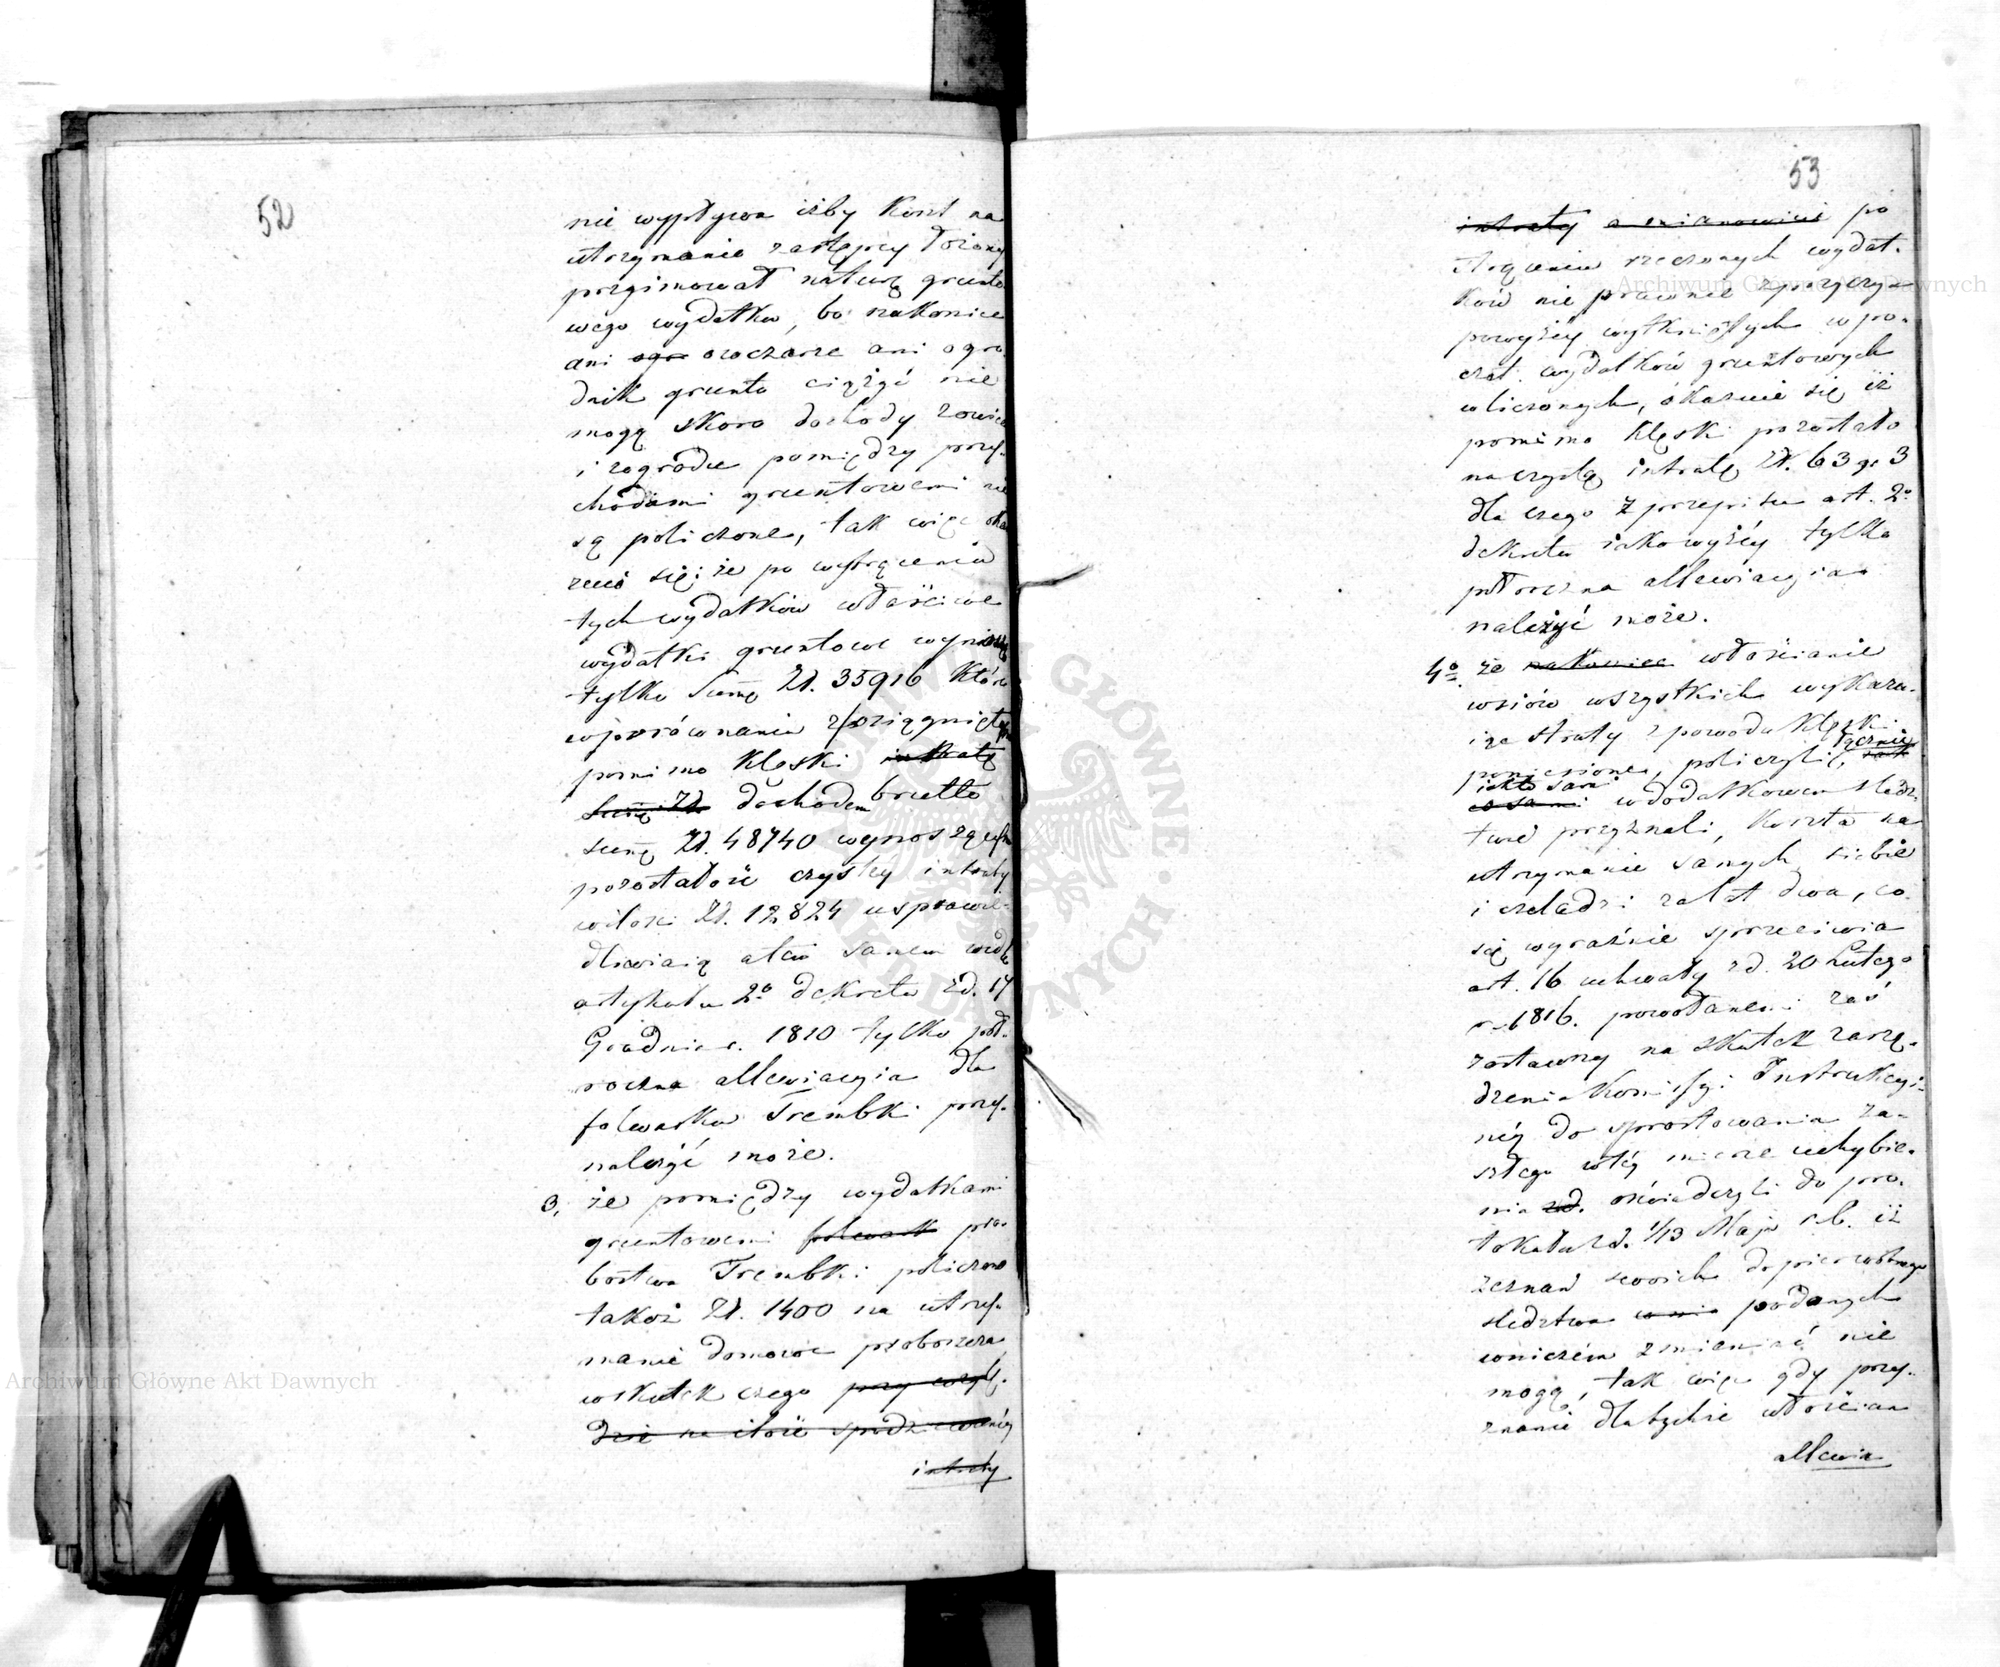 52
nie wypływa iżby koszt na
utrzymanie zastępcy łożony
przyimował naturę grunto
wego wydatku, bo nakoniec
ani ogr owczarze ani ogro
dnik gruntu ciążyć nie
mogą skoro dochody z owiec
i zogrodu pomiędzy przy-
chodami gruntowemi nie
są policzone, tak więc oka
zuie się; że po wytrąceniu
tych wydatków właściwe
wydatki gruntowe wynoszą
tylko Summę Zł. 35916 które
wporównaniu z osiągniętym
pomimo klęski intratę
Summę Zł. dochodem brutto
summę Zł. 48740 wynoszącym
pozostałość czystej intraty
wilości Zł. 12824 usprawie-
dliwiaią a tém samem wedle
artykułu 2º dekretu z d. 17
Grudnia r. 1810 tylko pół-
roczna allewiacyia dla
folwarku Trembki przy-
należyć może.
3, że pomiędzy wydatkami
gruntowemi folwark pro-
bostwa Trembki policzono
takoż Zł. 1400 na utrzy-
manie domowe proboszcza
wskutek czego
intraty
53
intraty a mianowicie po
strąceniu rzeczonych wydat-
ków nieprawnie zprzyczyn
powyżéy wytkniętych wpo-
czet wydatków gruntowych
wliczonych, okazuie się iż
pomimo klęski pozostało
na czystą intratę Zł. 63 gr 3
dla czego z przepisu art. 2º
dekretu iakowyżéy tylko
półroczna allewiacyia
należyć może.
4º. że nakoniec włościanie
wsiów wszystkich wykazu-
iąc straty z powodu klęski
poniesione, policzyli, łącznie
iak to sami
co sami wdodatkowem śledz-
twie przyznali, koszta na
utrzymanie samych siebie
i czeladzi za lat dwa, co
się wyraźnie sprzeciwia
art. 16 uchwały z d. 20 Lutego
r. 1816. powołanemi zaś
zostawszy na skutek zarzą-
dzenia Kommissyi Instrukcyi-
néy do sprostowania za-
szłego wtéy mierze uchybie-
nia oświadczyli do pro-
tokułu z d. 1/13 Maja r. b. iż
zeznań swoich do pierwotnego
śledztwa podanych
wniczém zmieniać nie
mogą, tak więc gdy przy-
znanie dla tychże włościan
allewia
Archiwum Główne Akt Dawnych
Archiwum Główne Akt Dawnych